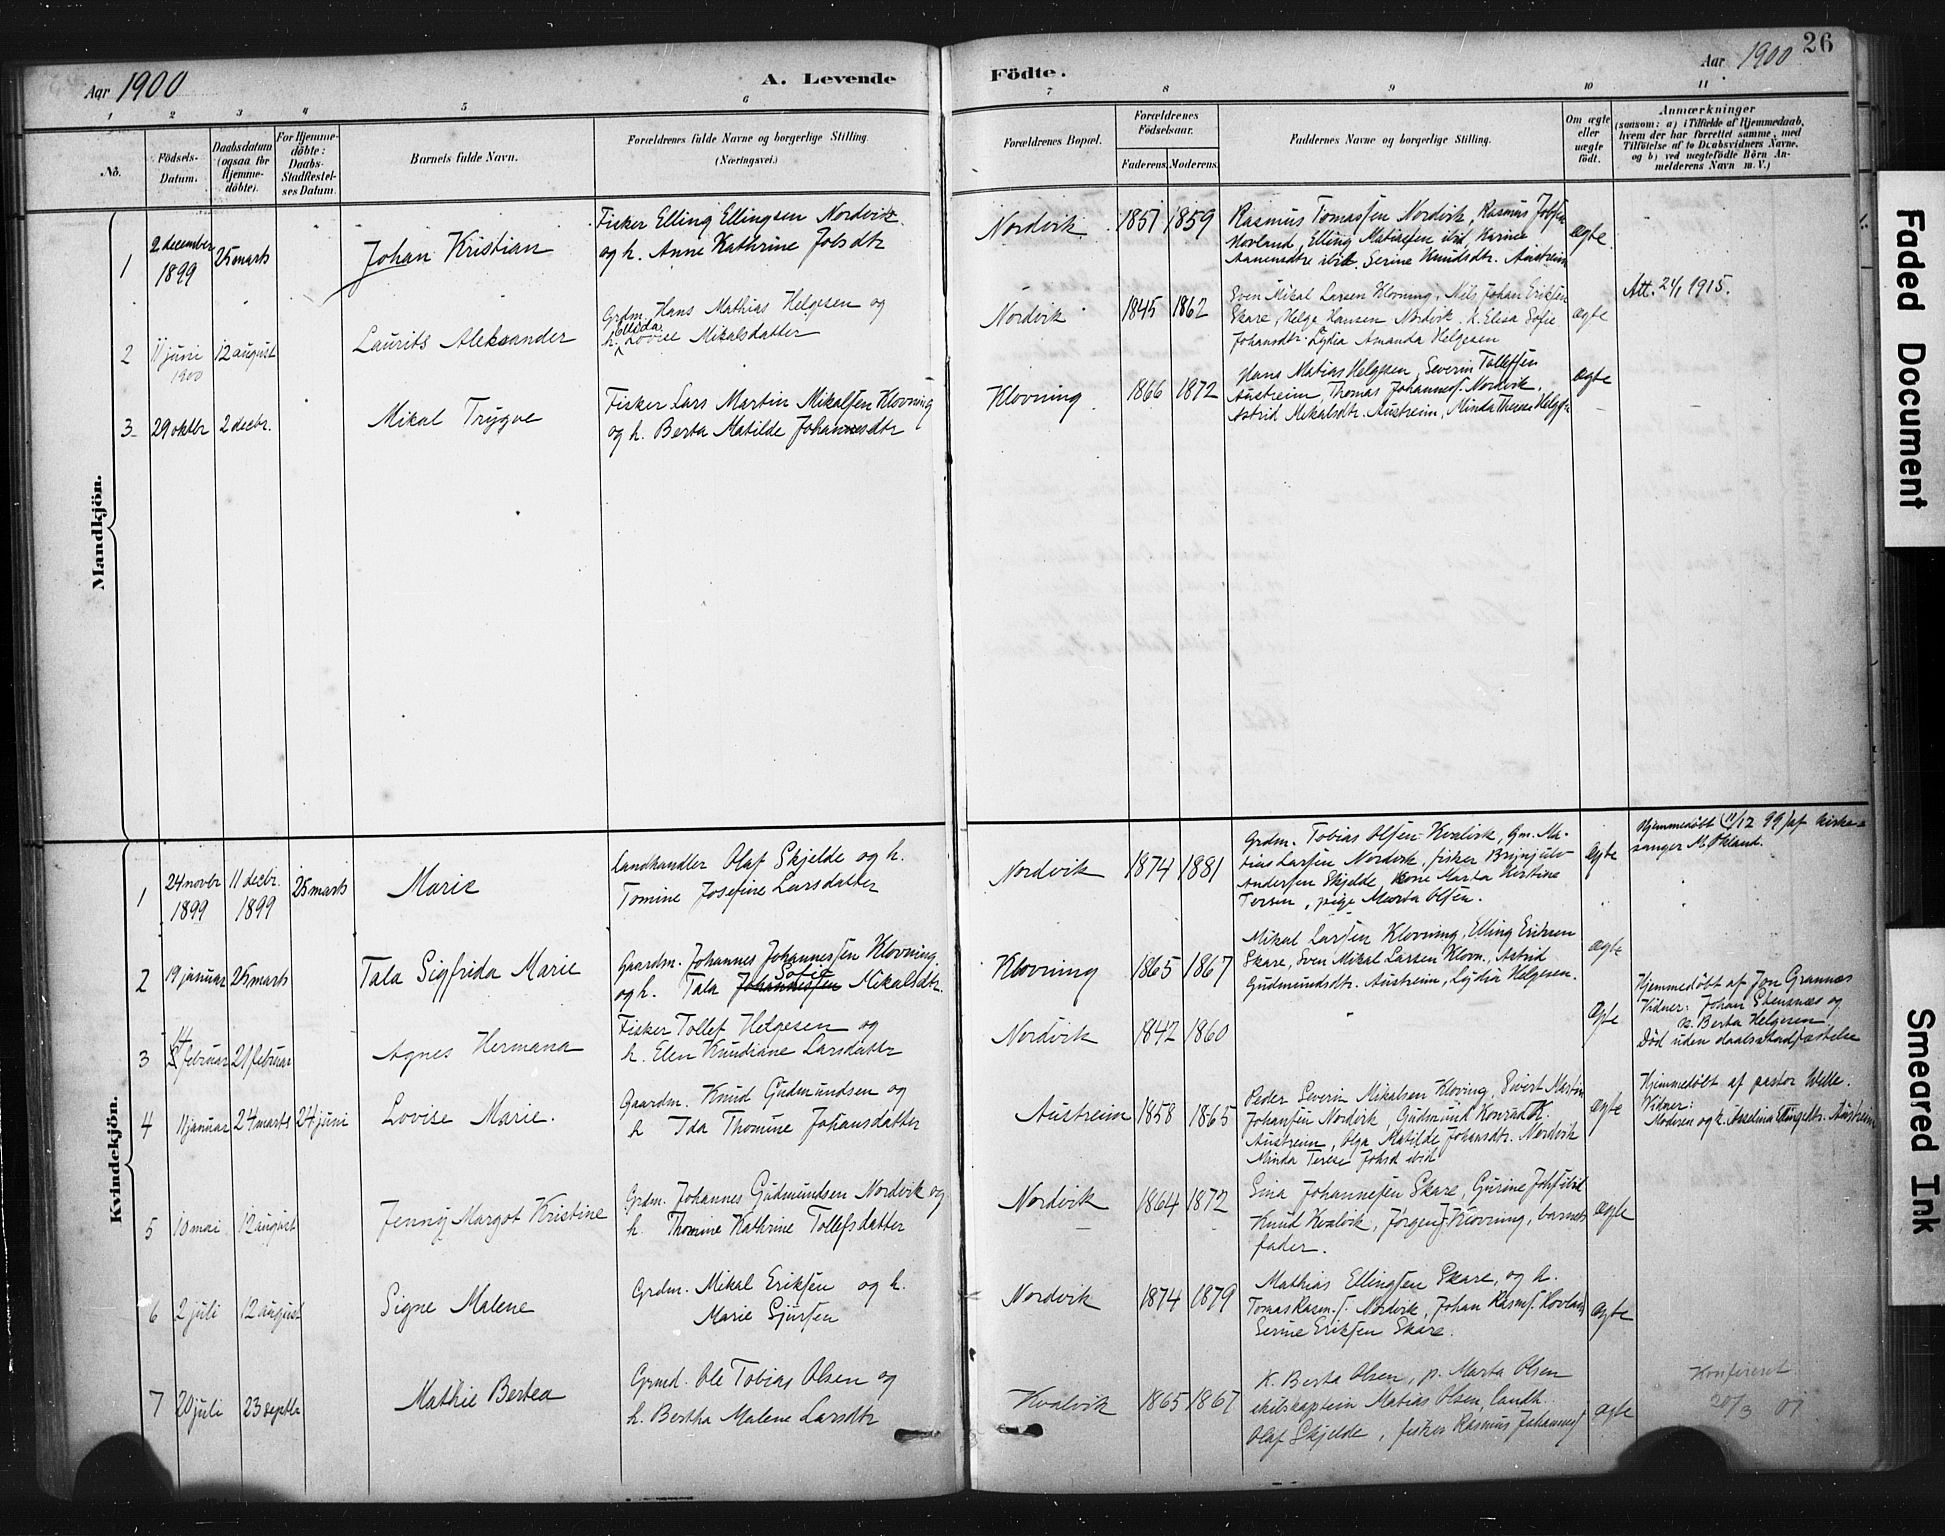 Aar 1900
A. Levende Födte.
Aar 1900
26
1 2 3 4 5 6 7 8 9 10 11
No.
Födsels-
Datum.
Daabsdatum
(ogsaa for
Hjemme-
döbte).
For Hjemme-
döbte:
Daabs-
Stadfæstel-
ses Datum.
Barnets fulde Navn.
Forældrenes fulde Navne og borgerlige Stilling.
(Næringsvei.)
Forældrenes Bopæl.
Forældrenes
Födselsaar.
Faderens.
Moderens.
Faddernes Navne og borgerlige Stilling.
Om ægte
eller
uægte
födt.
Anmærkninger
(saasom: a) i Tilfælde af Hjemmedaab,
hvem der har forrettet samme, med
Tilföielse af to Daabsvidners Navne,
og b) ved uægtefödte Börn An-
melderens Navn m. V.)
Mandkjön.
1
2 december
1899
25 marts
Johan Kristian
Fisker Elling Ellingsen Nordvik
og h. Anne Kathrine Jobsdtr
Nordvik
1857 1859
Rasmus Tomassen Nordvik, Rasmus Jobsen
Hovland, Elling Matiassen ibid, Karine
Aanensdtre ibid. Serine Knudsdtr. Austreim
ægte
2
11 juni
1900
12 august
Laurits Aleksander
Grdm. Hans Mathias Helgesen og
h. Lovise Mikalsdatter
Nordvik
1845 1862
Sven Mikal Larsen Klovning, Nils Johan Eriksen
Skare, Helge Hansen Nordvik, k. Elisa Sofie
Johansdtr. Lydia Amanda Helgesen
ægte
Att. 24/1 1915.
3
29 oktbr
2 decbr.
Mikal Trygve
Fisker Lars Martin Mikalsen Klovning
og h. Berta Matilde Johannesdtr
Klovning
1866 1872
Hans Matias Helgesen, Severin Tollefsen
Austreim, Thomas Johannes. Nordvik,
Astrid Mikalsdtr. Austreim, Minda Therese Helgsen
ægte
Kvindekjön.
1
24 novbr
1899
11 decbr.
1899
25 marts
Marie
Landhandler Olaf Skjelde og h.
Tomine Josefine Larsdatter
Nordvik
1874 1881
Grdm. Tobias Olsen Kvalvik, Gm. Ma-
tias Larsen Nordvik, fisker Brynjulv
Andersen Skjelde, kone Marta Kristine
Tersen, pige Marta Olsen.
ægte
Hjemmedöbt 11/12 99 af kirke-
sanger M. Økland.
2
19 januar
25 marts
Tala Sigfrida Marie
Gaardm. Johannes Johannessen Klovning
og h. Tala Sofie Mikalsdtr.
Klovning
1865 1867
Mikal Larsen Klovning, Elling Eriksen
Skare, Sven Mikal Larsen Klovn., Astrid
Gudmundsdtr. Austreim, Lydia Helgesen.
ægte
3
februar
21 februar
Agnes Hermana
Fisker Tollef Helgesen og
h. Elen Knudiane Larsdatter
Nordvik
1842 1860
ægte
Hjemmedöbt af Jon Grannæs
Vidner: Johan Stensnæs og
k. Berta Helgesen
Död uden daabsstadfæstelse
4
11 januar
24 marts
24 juni
Lovise Marie.
Gaardm. Knud Gudmundsen og
h Ida Thomine Johansdatter
Austreim
1858 1865
Peder Severin Mikalsen Kloving, Sivert Martin
Johansen Nordvik, Gudmund Konrad K.
Austreim, Olga Matilde Johansdtr. Nordvik
Minda Terese Johsd ibid
ægte
Hjemmedöbt af pastor Welle.
Vidner:
Moderen og k. Anselina Austreim
5
10 mai
12 august
Jenny Margot Kristine
Grdm. Johannes Gudmundsen Nordvik og
h. Thomine Kathrine Tollefsdatter
Nordvik
1864 1872
Sina Johannesen Skare, Gurine Johs ibid
Knud Kvalvik, Jørgen J. Klovning, barnets
fader.
ægte
6
2 juli
12 august
Signe Malene
Grdm. Mikal Eriksen og h.
Marie Sjursen
Nordvik
1874 1879
Mathias Ellingsen Skare, og h.
Tomas Rasm.s. Nordvik, Johan Rasms. Hovland
Serine Eriksen Skare.
ægte
7
20 juli
23 septbr
Mathie Bertea
Grmd. Ole Tobias Olsen og
h. Bertha Malene Larsdtr
Kvalvik
1865 1867
K. Berta Olsen, p. Marta Olsen
skibskaptein Matias Olsen, landh.
Olaf Skjelde, fisker Rasmus Johannes
ægte
20/3 07
Faded Document
Smeared Ink